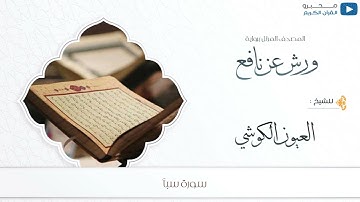 محبرو
القرآن الكريم
المصحف المرتل برواية
ورش عن نافع
للشيخ :
العيون الكوشي
سورة سبأ